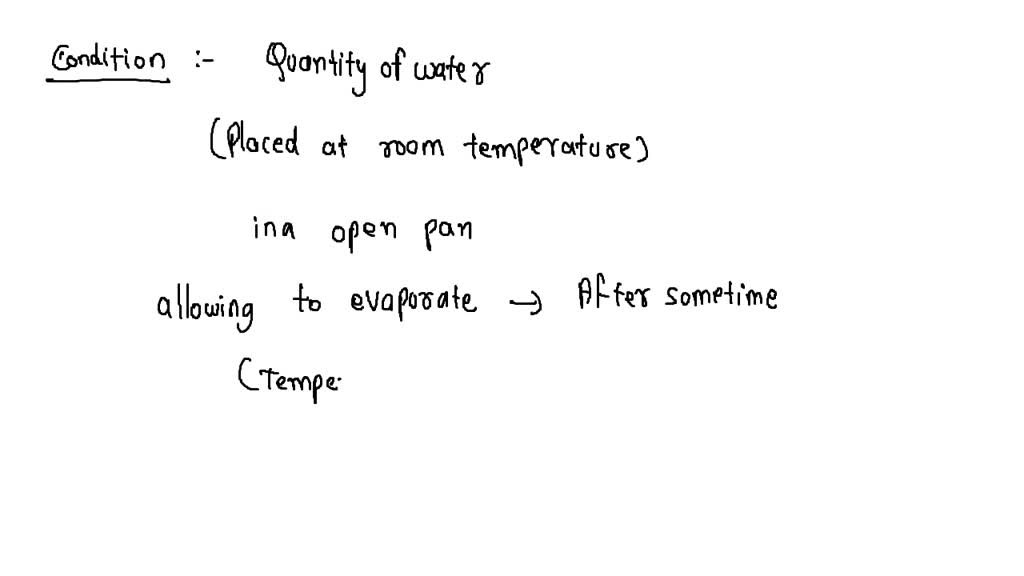 Condition :- Quantity of water
(Placed at room temperature)
in a open pan
allowing to evaporate → After sometime
(Tempe